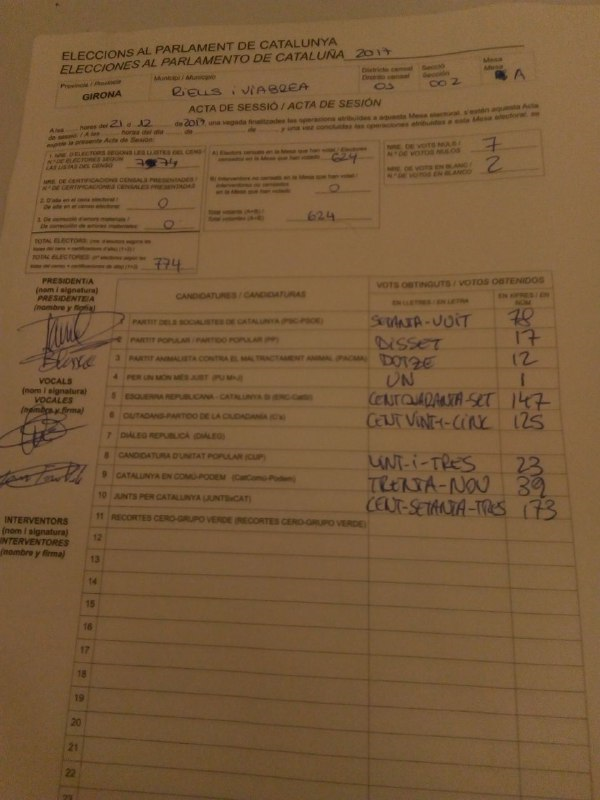 ELECCIONS AL PARLAMENT DE CATALUNYA
ELECCIONES AL PARLAMENTO DE CATALUÑA 2017
Província / Provincia
GIRONA
Municipi / Municipio
RIELLS i VIABREA
Districte censal
Distrito censal
01
Secció
Sección
002
Mesa
Mesa
A
ACTA DE SESSIÓ / ACTA DE SESIÓN
A les hores del 21 d 12 de 2017, una vegada finalitzades les operacions atribuïdes a aquesta Mesa electoral, s'estén aquesta Acta
de sessió. / A las horas del día de de y una vez concluidas las operaciones atribuidas a esta Mesa electoral, se
expide la presente Acta de Sesión:
1. NRE. D'ELECTORS SEGONS LES LLISTES DEL CENS
N.º DE ELECTORES SEGÚN
LAS LISTAS DEL CENSO
774
NRE. DE CERTIFICACIONS CENSALS PRESENTADES /
N.º DE CERTIFICACIONES CENSALES PRESENTADAS
2. D'alta en el cens electoral /
De alta en el censo electoral
0
3. De correcció d'errors materials /
De corrección de errores materiales
0
TOTAL ELECTORS:
TOTAL ELECTORES:
774
A) Electors censats en la Mesa que han votat / Electores
censados en la Mesa que han votado
624
B) Interventors no censats en la Mesa que han votat /
Interventores no censados
en la Mesa que han votado
0
Total votants (A+B) /
Total votantes (A+B)
624
NRE. DE VOTS NULS /
N.º DE VOTOS NULOS
7
NRE. DE VOTS EN BLANC /
N.º DE VOTOS EN BLANCO
2
PRESIDENT/A
(nom i signatura)
PRESIDENTE/A
(nombre y firma)
VOCALS
(nom i signatura)
VOCALES
(nombre y firma)
INTERVENTORS
(nom i signatura)
INTERVENTORES
(nombre y firma)
CANDIDATURES / CANDIDATURAS
VOTS OBTINGUTS / VOTOS OBTENIDOS
EN LLETRES / EN LETRA
EN XIFRES / EN NÚM.
1 PARTIT DELS SOCIALISTES DE CATALUNYA (PSC-PSOE) SETANTA-VUIT 78
2 PARTIT POPULAR / PARTIDO POPULAR (PP) DISSET 17
3 PARTIT ANIMALISTA CONTRA EL MALTRACTAMENT ANIMAL (PACMA) DOTZE 12
4 PER UN MÓN MÉS JUST (PUM+J) UN 1
5 ESQUERRA REPUBLICANA - CATALUNYA SÍ (ERC-CatSí) CENTQUARANTA-SET 147
6 CIUTADANS-PARTIDO DE LA CIUDADANÍA (C's) CENT VINT-I-CINC 125
7 DIÀLEG REPUBLICÀ (DIÀLEG)
8 CANDIDATURA D'UNITAT POPULAR (CUP) VINT-i-TRES 23
9 CATALUNYA EN COMÚ-PODEM (CatComú-Podem) TRENTA-NOU 39
10 JUNTS PER CATALUNYA (JUNTSxCAT) CENT-SETANTA-TRES 173
11 RECORTES CERO-GRUPO VERDE (RECORTES CERO-GRUPO VERDE)
12
13
14
15
16
17
18
19
20
21
22
23